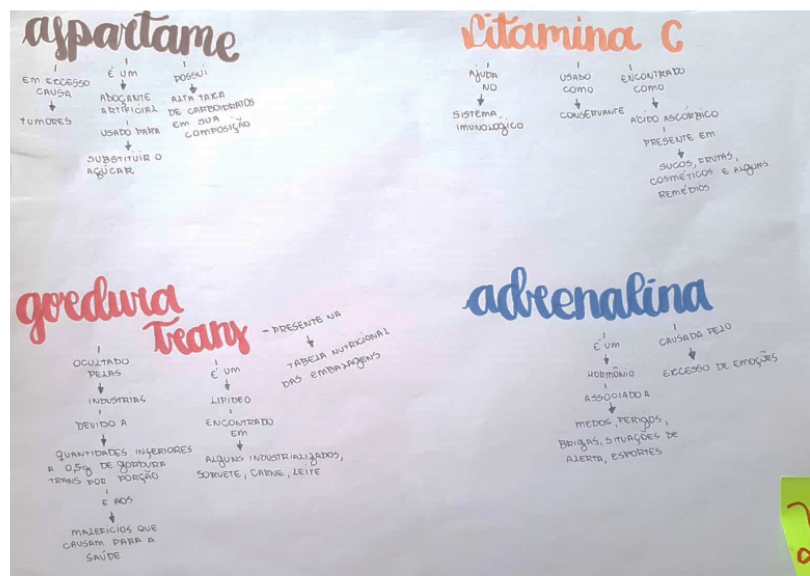 aspartame
EM EXCESSO
CAUSA
TUMORES
É UM
ADOÇANTE
ARTIFICIAL
USADO PARA
SUBSTITUIR O
AÇÚCAR
POSSUI
ALTA TAXA
DE CARBOIDRATOS
EM SUA
COMPOSIÇÃO
Vitamina C
AJUDA
NO
SISTEMA
IMUNOLÓGICO
USADO
COMO
CONSERVANTE
ENCONTRADO
COMO
ÁCIDO ASCÓRBICO
PRESENTE EM
SUCOS, FRUTAS,
COSMÉTICOS E ALGUNS
REMÉDIOS
gordura
trans
OCULTADO
PELAS
INDUSTRIAS
DEVIDO A
QUANTIDADES INFERIORES
A 0,5g DE GORDURA
TRANS POR PORÇÃO
E AOS
MALEFÍCIOS QUE
CAUSAM PARA A
SAÚDE
É UM
LIPIDEO
ENCONTRADO
EM
ALGUNS INDUSTRIALIZADOS,
SORVETE, CARNE, LEITE
- PRESENTE NA
TABELA NUTRICIONAL
DAS EMBALAGENS
adrenalina
É UM
HORMÔNIO
ASSOCIADO A
MEDOS, PERIGOS,
BRIGAS, SITUAÇÕES DE
ALERTA, ESPORTES
CAUSADA PELO
EXCESSO DE EMOÇÕES